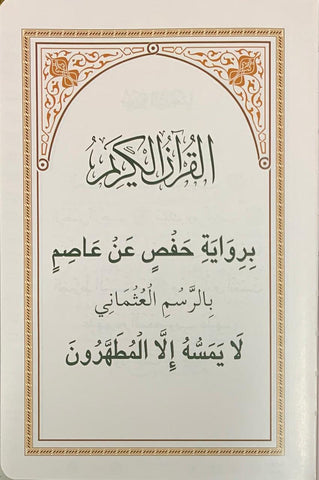 القُرآنُ الكَرِيمُ
بِرِوَايَةِ حَفْصٍ عَنْ عَاصِمٍ
بِالرَّسْمِ الْعُثْمَانِي
لَا يَمَسُّهُ إِلَّا الْمُطَهَّرُونَ